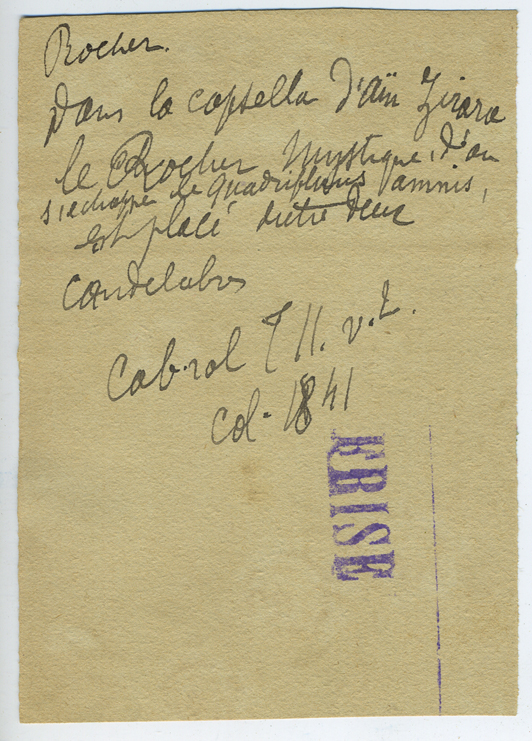 Rocher.
Dans la capsella d'aïn Zirara
le Rocher Mystique, d'ou
s'echappe le quadrifluus amnis,
est placé entre deux
Candelabres
Cabrol T II. v. 2.
Col. 1841
FRISE